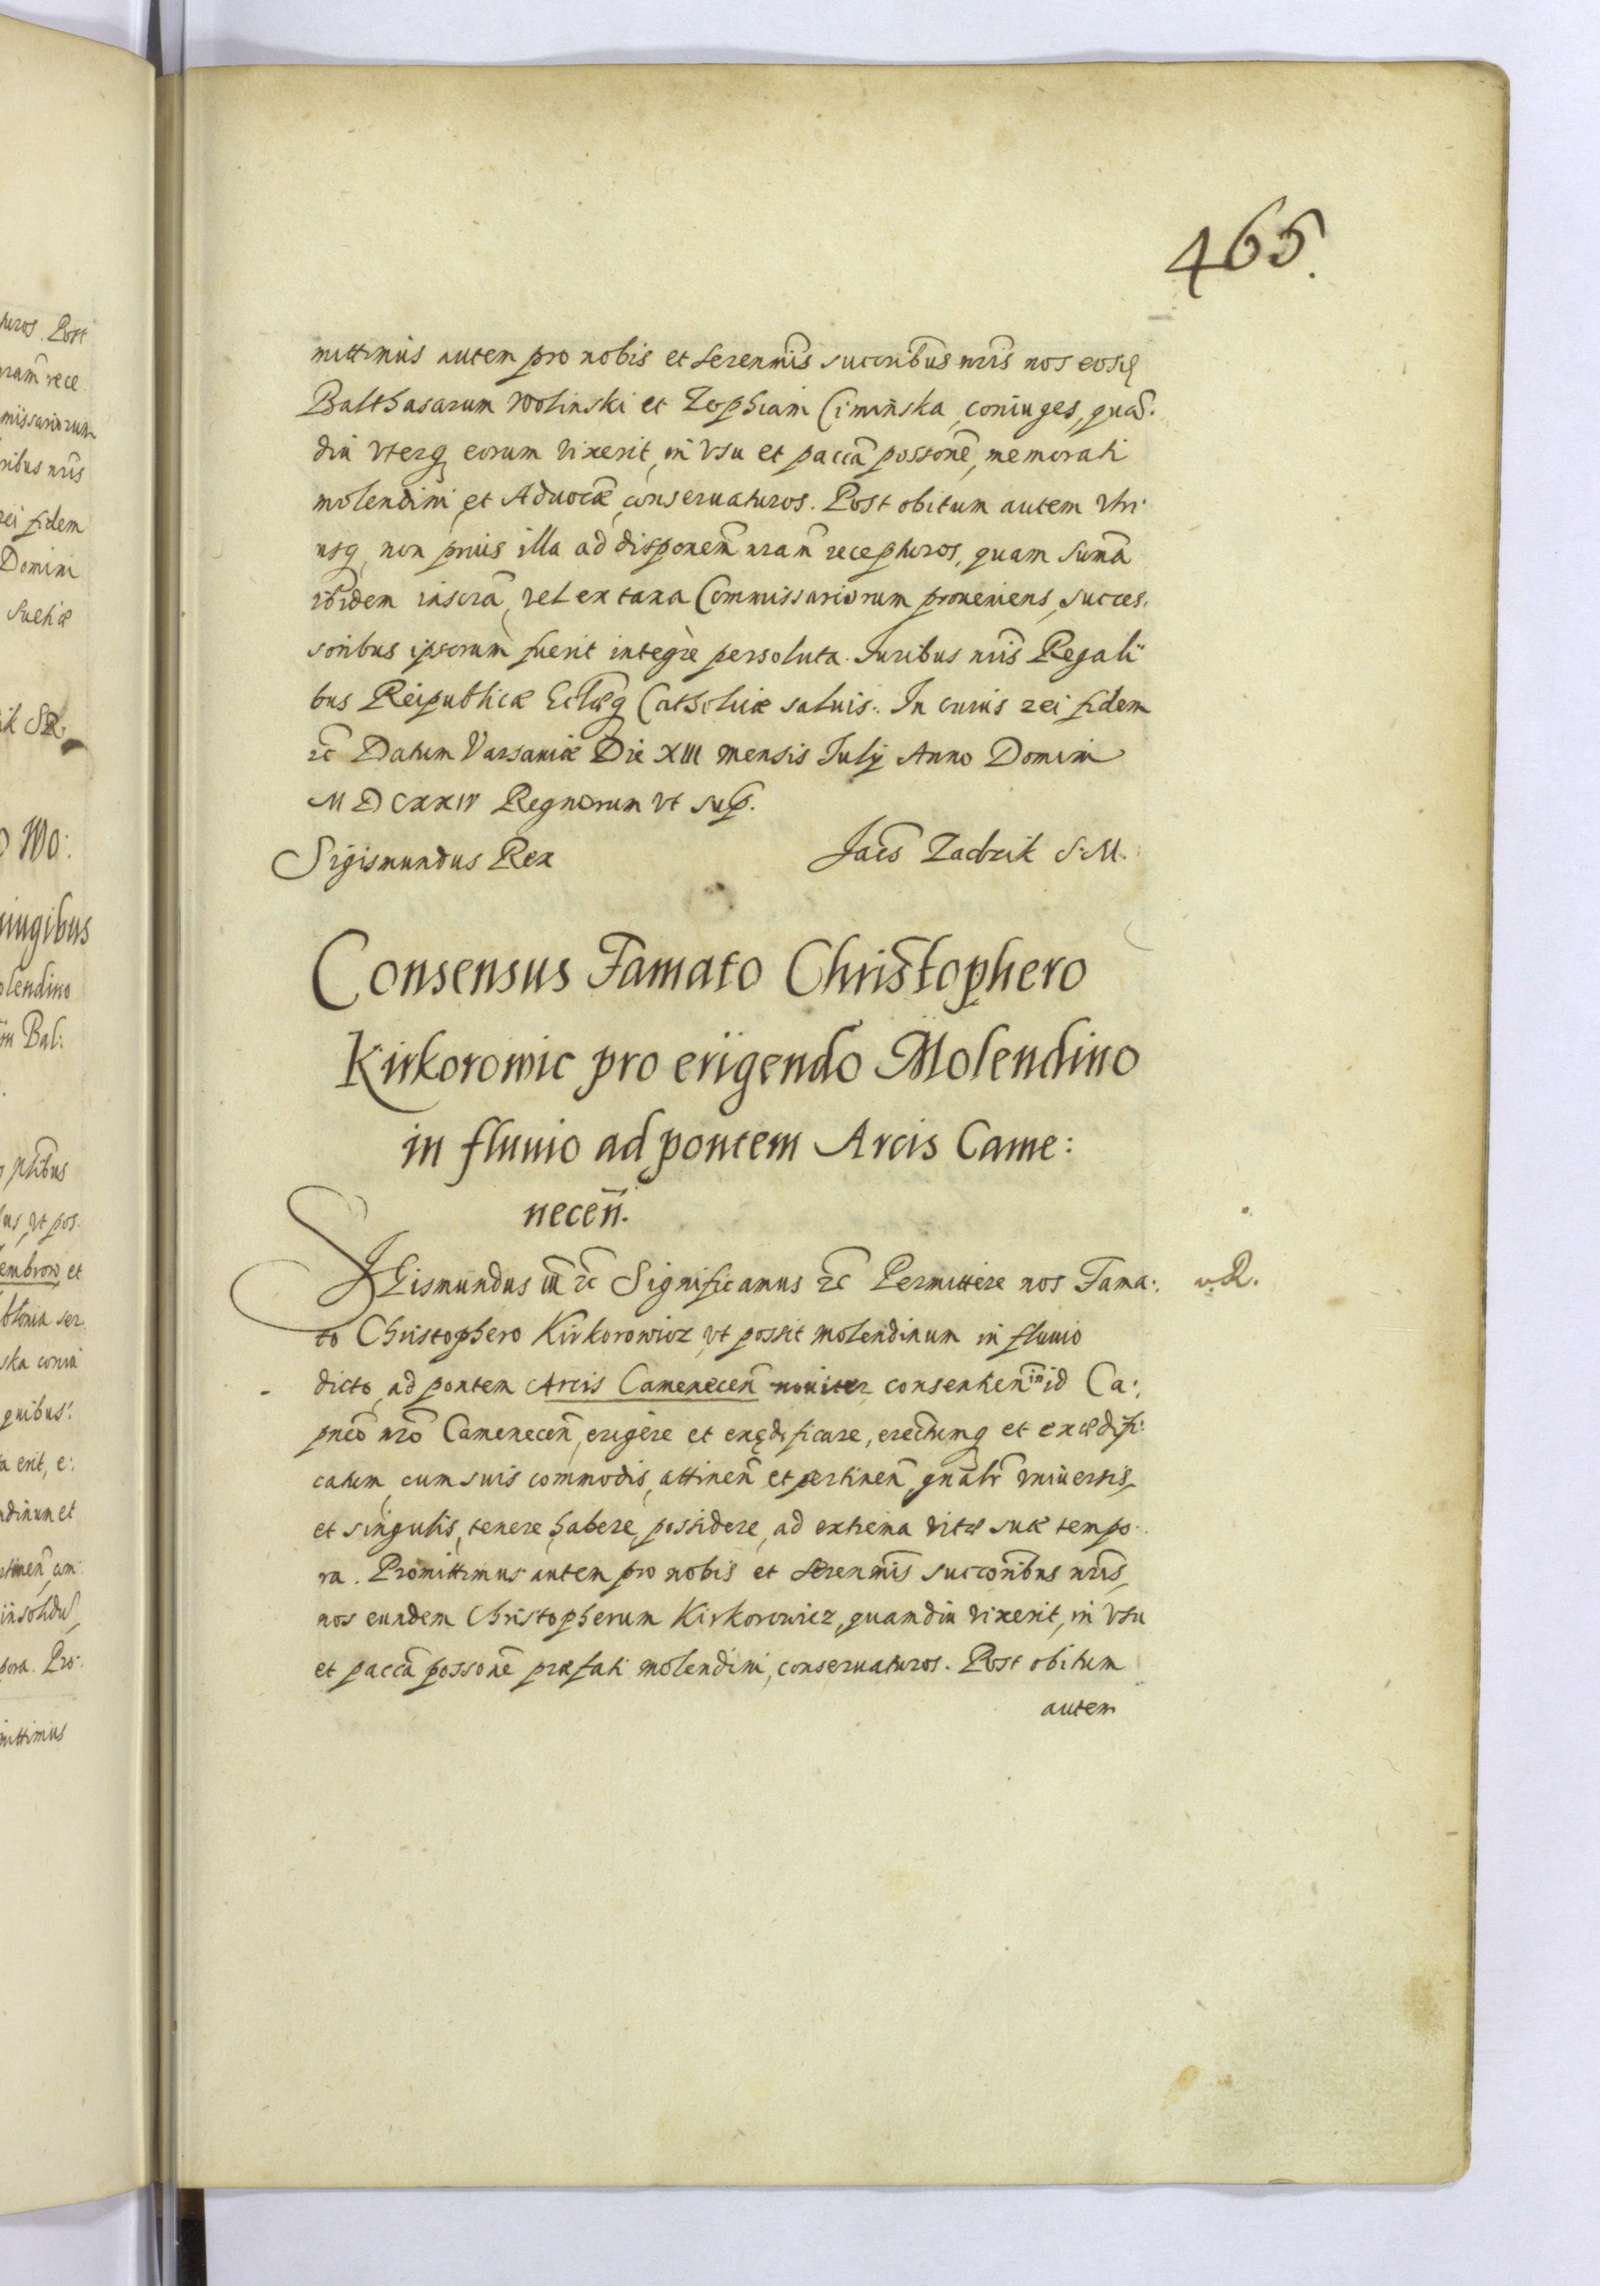 465.
mittimus autem pro nobis et Serenm̃is succribus nr̃is nos eosđ
Balthasarum Wolinski et Zophiam Ciminska, coniuges, quã-
diu vterq₃ eorum vixerit, in vsu et paccã possonẽ, memorati
molendini, et Aduocæ, conseruaturos. Post obitum autem vtri-
usq₃ non prius illa ad disponem̃ nram̃ recepturos, quam sum̃a
ibidem inscrã, vel ex taxa Commissariorum proueniens, succes-
soribus ipsorum fuerit integrè persoluta. Iuribus nr̃is Regali-
bus Reipublicæ Ecclæq₃ Catholicæ saluis. In cuius rei fidem
&c Datum Varsauiæ Die XIII mensis Iulij Anno Domini
MDCXXIV Regnorum vt sup.
Sigismundus Rex
Jacs Zadzik S.M.
Consensus Famato Christophero
Kirkorowic pro erigendo Molendino
in fluuio ad pontem Arcis Came:
necen̄.
SIgismundus III &c Significamus &c Permittere nos Fama:
v.R.
to Christophero Kirkorowicz, vt possit molendinum in fluuio
dicto, ad pontem Arcis Camenecen̄ nouiter consentien̄ in id Ca:
pneõ nrõ Camenecen̄, erigere et exędificare, erectumq₃ et exædifi:
catum, cum suis commodis, attinen̄ et pertinen̄, gnãlr vniuersis,
et singulis, tenere, habere, possidere, ad extrema vitæ suæ tempo-
ra. Promittimus autem pro nobis et Serenm̃is succoribus nr̃is,
nos eundem Christopherum Kirkorowicz, quamdiu vixerit, in vsu
et paccã possonẽ præfati molendini, conseruaturos. Post obitum
autem